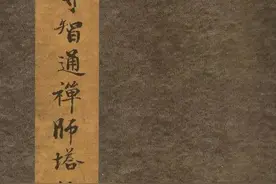 智通禪師塔